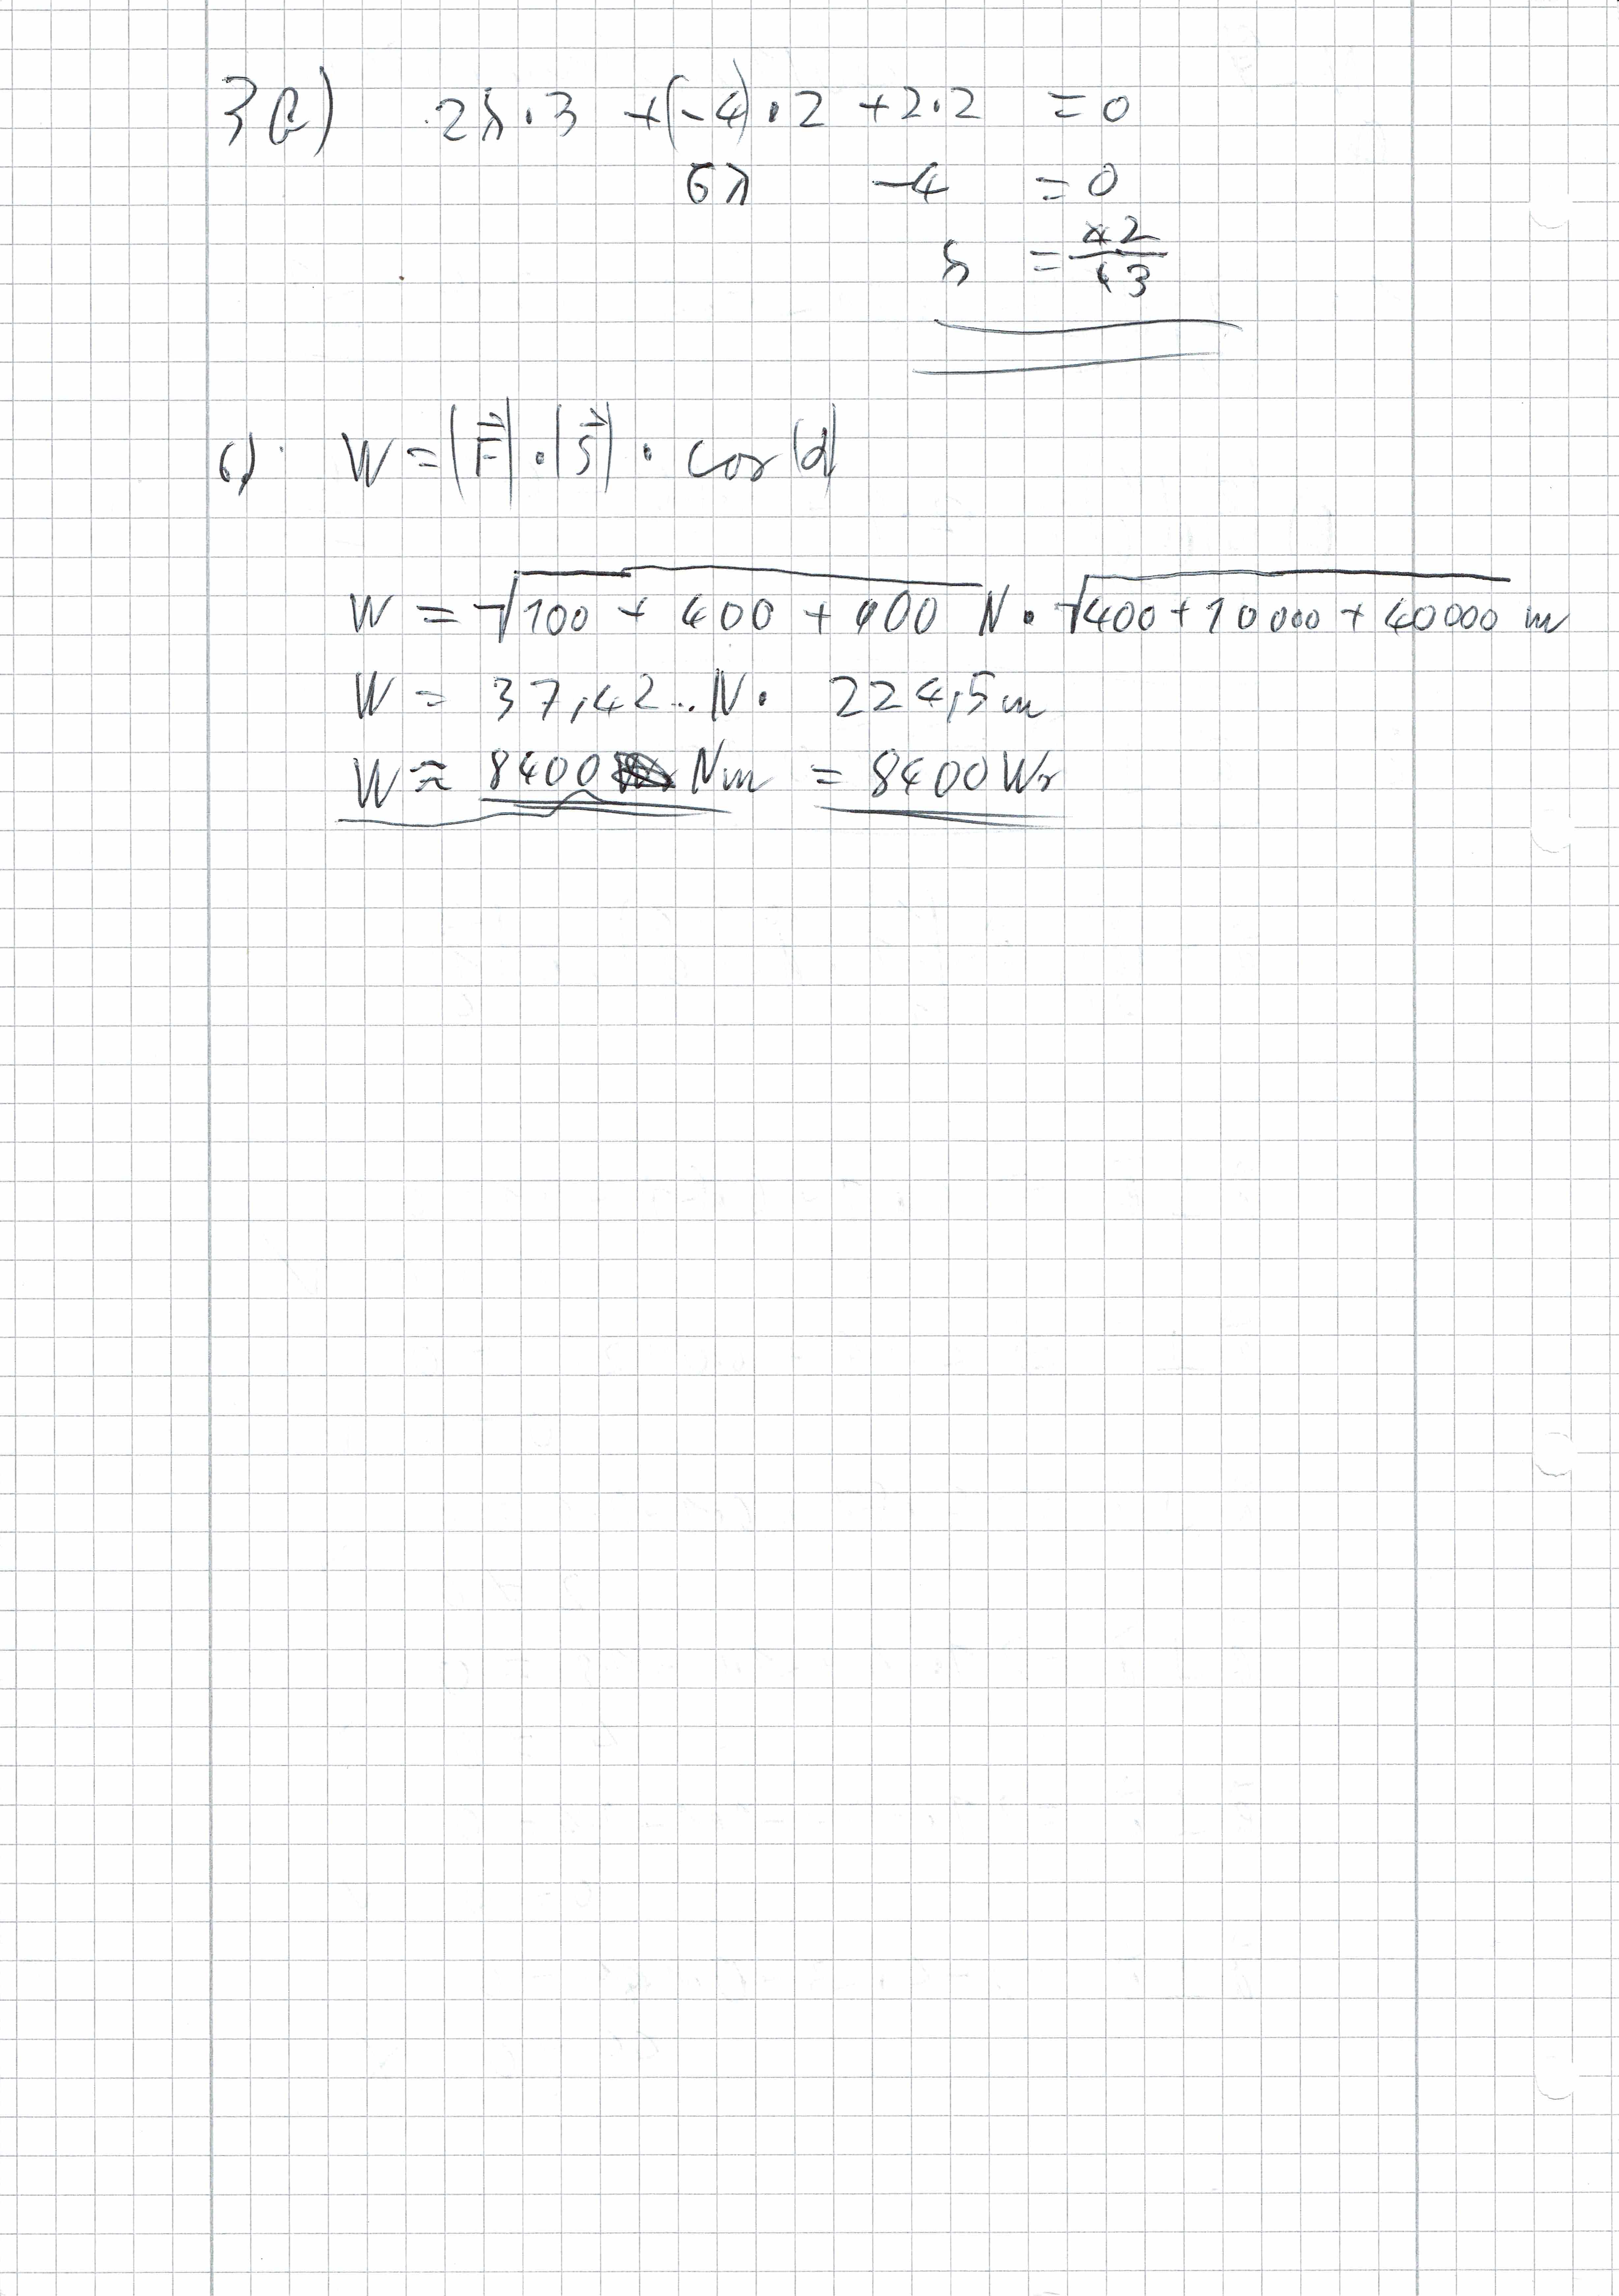 3b) 2λ·3 +(-4)·2 +2·2 =0
6λ -4 =0
λ = 2/3
c) W = |F⃗|·|s⃗|· cos(α)
W = √100 + 400 + 900 N·√400 + 10000 + 40000 m
W = 37,42.. N· 224,5m
W ≈ 8400 Nm = 8400 Ws